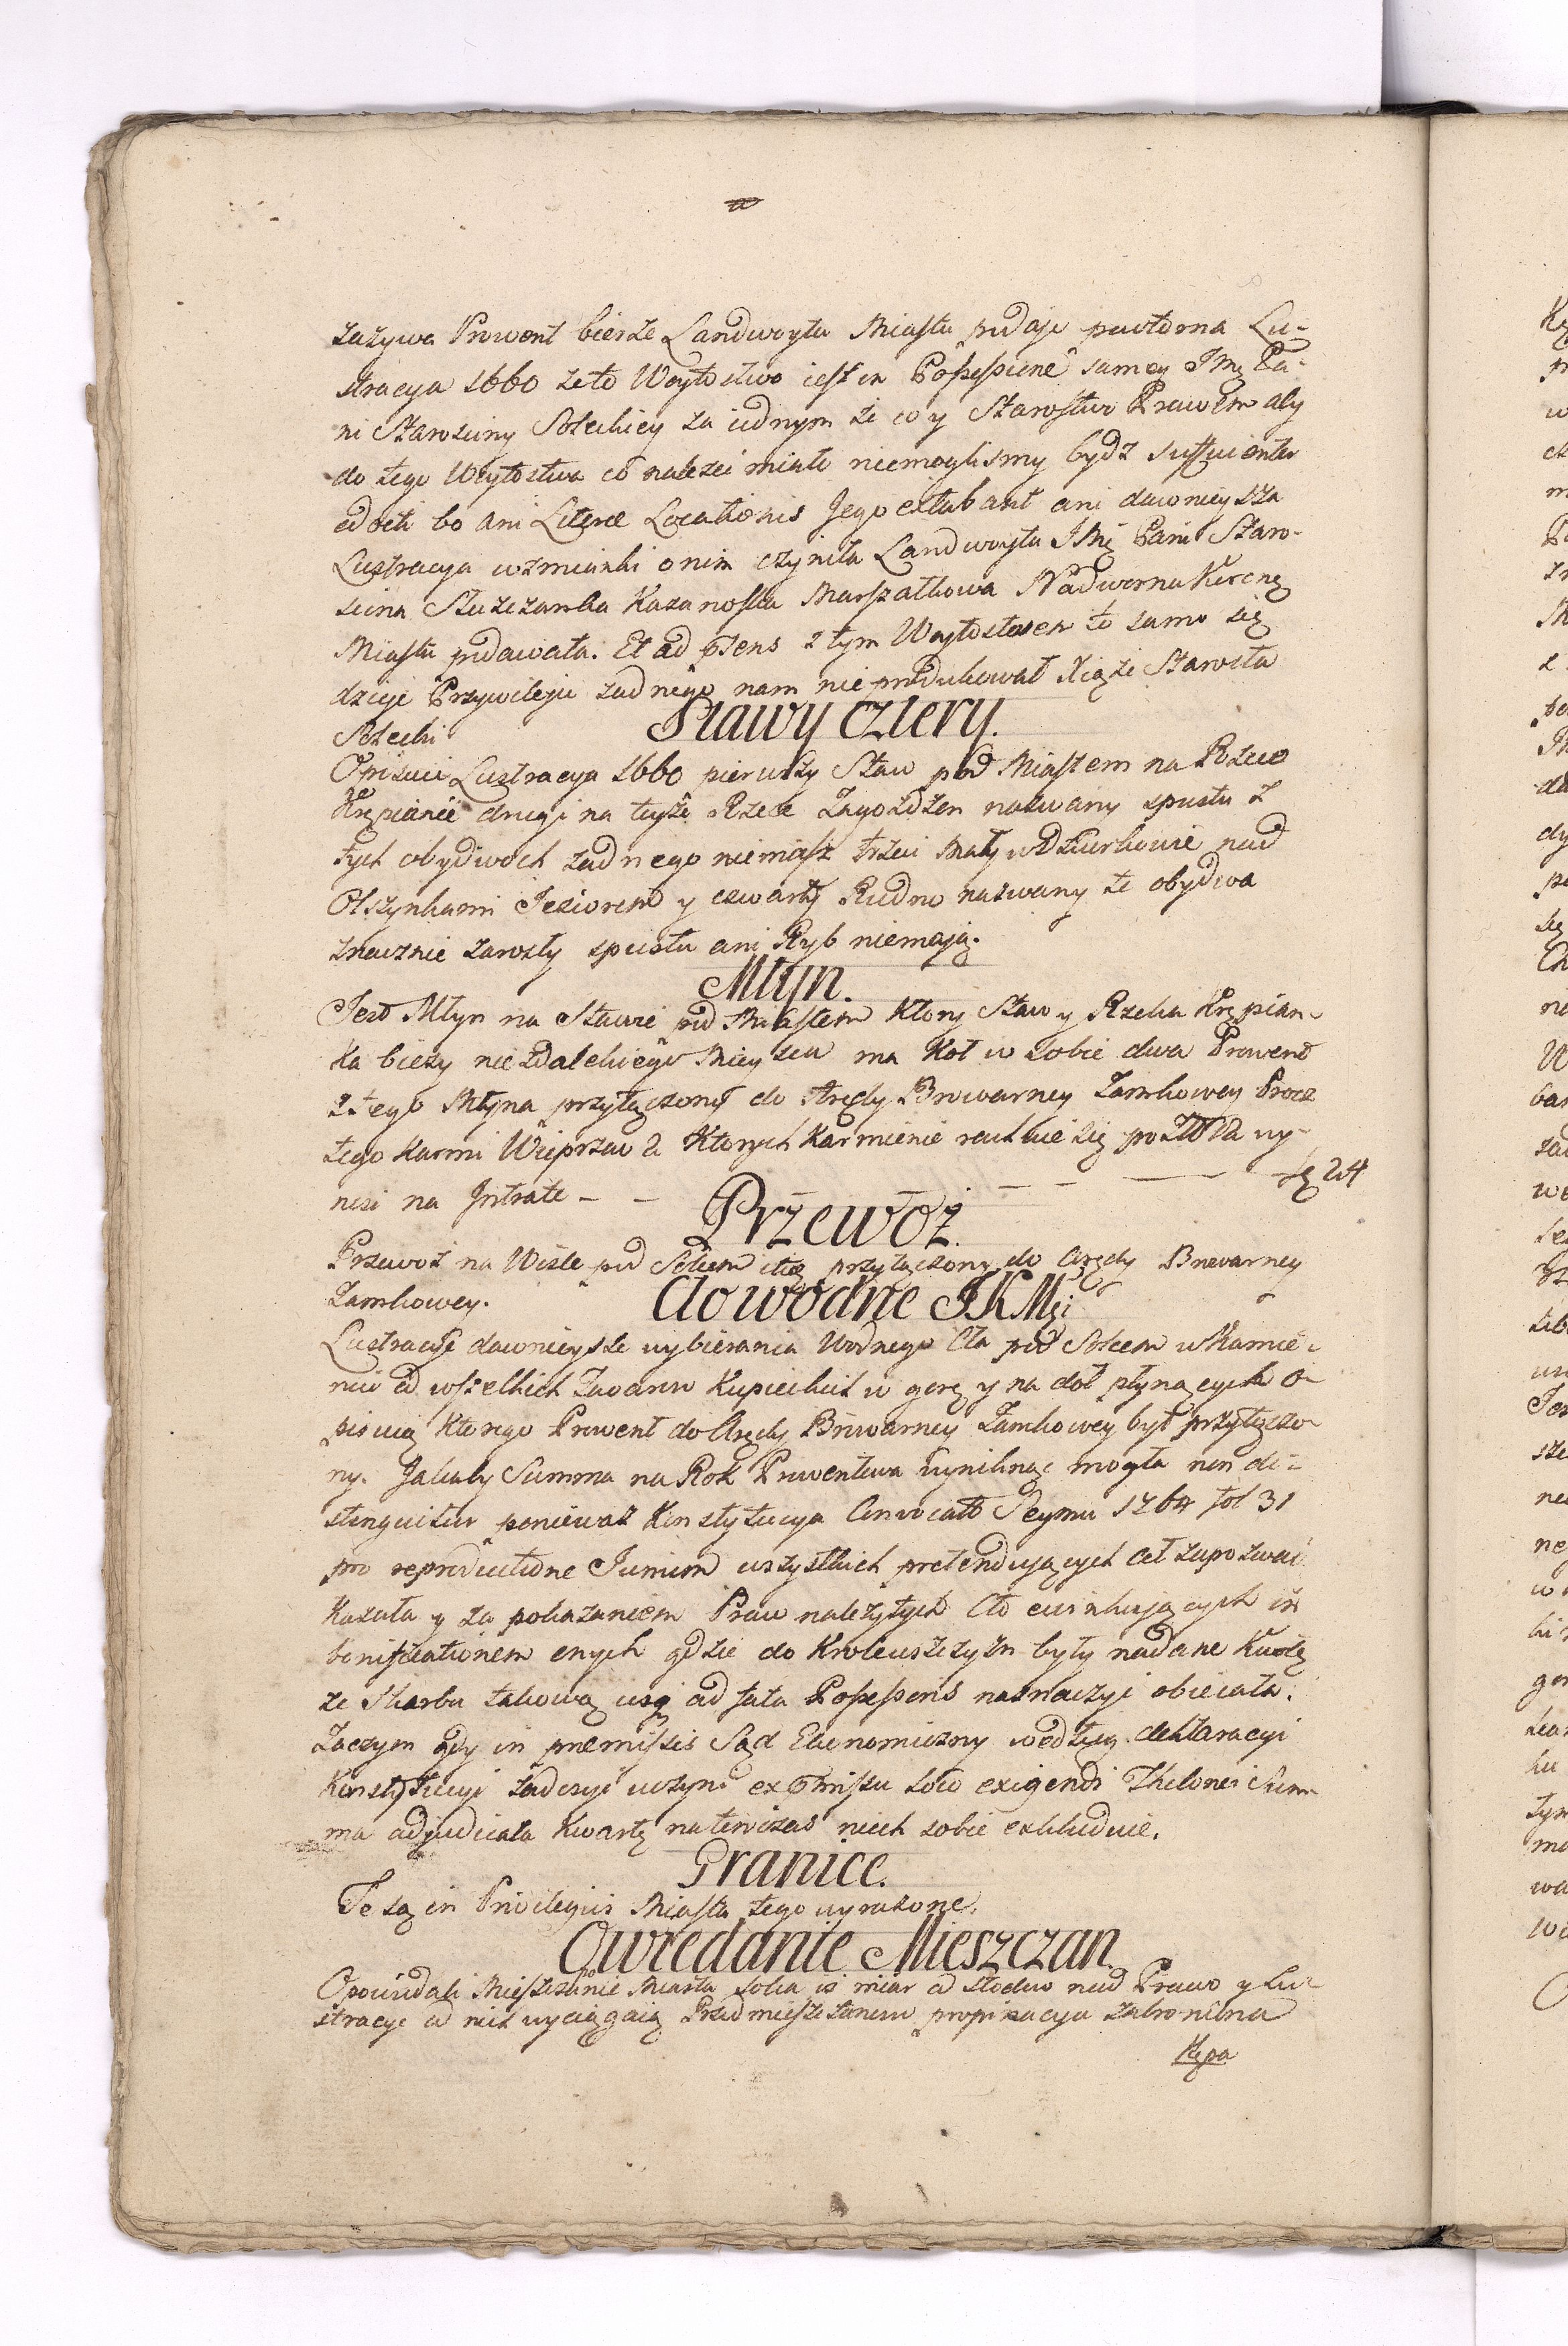 zazywa Prowent bierze Landwoyta Miastu podaje powtorna Lu-
stracya 1660 ze to Woytostwo iest in Possessione samey Jmę Pa-
ni Starosciny Soleckiey za iednym że co y Starostwo Prawem aby
do tego Woytostwa co nalezeć miało niemoglismy bydz sufficienter
edocti bo ani Literæ Locationis Jego extabant ani dawnieysza
Lustracya wzmianki o nim czyniła Landwoyta Jmę Pani Staro-
scina Słuszczanka Kazanoska Marszałkowa Nadworna Koronę
Miastu podawała. Et ad psens z tym Woytostwem to samo się
dzieje Przywileju zadnego nam nie produkował Xiąże Starosta
Solecki
Stawy cztery.
Opisuie Lustracya 1660 pierwszy Staw pod Miastem na Rzece
Krępianie drugi na teyże Rzece Zagozdzen nazwany spustu z
tych obydwoch zadnego niemasz trzeci Mały w Dziurkowie nad
Olszynkami Jeziorem y czwarty Rudno nazwany te obydwa
znacznie zarosły spustu ani Ryb niemają.
Młyn.
Jest Młyn na Stawie pod Miastem Ktory Staw y Rzeka Krępian-
ka biezy niezdalekiego Mieysca ma Koł w sobie dwa Prowent
z tego Młyna przyłączony do Arędy Browarney Zamkowey Procz
tego karmi Wieprzow 2 Ktorych Karmienie rachuie się po Zł 12 wy-
nosi na Jntrate - - - - - fl 24
Przewoz.
Przewoz na Wisle pod Solcem itię przyłączony do Arędy Browarney
Zamkowey.
Cło wodne JKMći
Lustracye dawnieysze wybierania Wodnego Cła pod Solcem w Kamie-
niu od wszelkich Towarow Kupieckich w gorę y na doł płynących O-
pisuią Ktorego Prowent do Arędy Browarney Zamkowey był przyłączo-
ny. Jakaby Summa na Rok Prowentowa wyniknąc mogła non di-
stinguitur poniewaz Konstytucya Convocatt Seymu 1764 fol 31
pro reproductione Jurium wszystkich pretendujących ceł zapozwać
Kazała y za pokazaniem Praw należytych Cło ewinkujących in
bonificationem onych gdzie do Krolewszczyzn były nadane Kwotę
ze Skarbu takową usq ad fata Possessoris naznaczyć obiecała.
Zaczym gdy in præmissis Sąd Ekonomiczny według deklaracyi
Konstytucyi zadosyć uczyni ex omissu loco exigendi Thelonei Sum-
ma adjudicata Kwartę natenczas niech sobie exkluduie.
Granice.
Te są in Privilegiis Miasta tego wyrazone.
Owredanie Mieszczan.
Opowiadali Mieszczanie Miasta Solca iś miar od słodow nad Prawo y Lu-
stracye od nich wyciągaią Przedmieszczanom propinacya zabroniona
Kępa